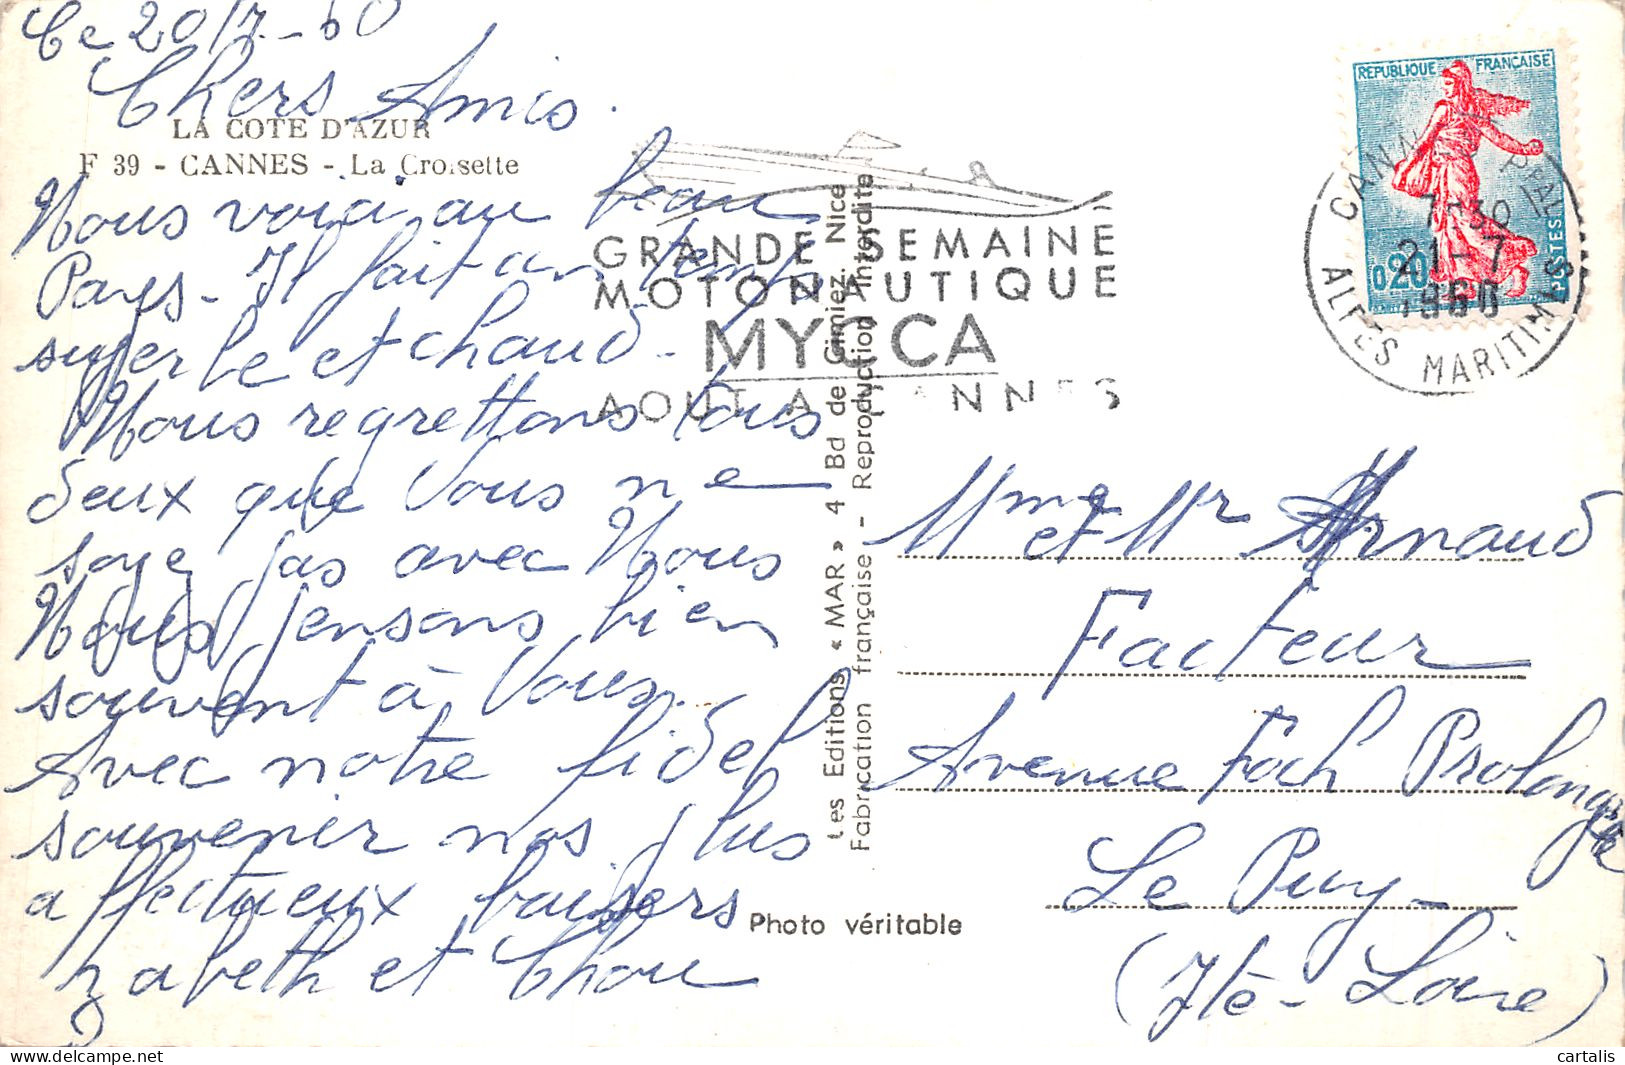 Ce 20/7-60
Chers Amis.
LA COTE D'AZUR
F 39 - CANNES - La Croisette
Nous voici au beau
Pays - Il fait un temps
superbe et chaud -
Nous regrettons tous
deux que vous ne
soye pas avec Nous
Nous pensons bien
souvent à Vous.
Avec notre fidel
souvenir nos plus
affectueux baisers
zabeth et Chou
GRANDE SEMAINE
MOTONAUTIQUE
MYCCA
AOUT A CANNES
Les Editions « MAR » 4 Bd de Cimiez. Nice
Fabrication française - Reproduction interdite
Photo véritable
REPUBLIQUE FRANÇAISE
0,20
POSTES
CANNES PPAL
7-30
21-7
1960
ALPES MARITIMES
Mme et Mr Arnaud
Facteur
Avenue Foch Prolongée
Le Puy -
(Hte - Loire)
cartalis